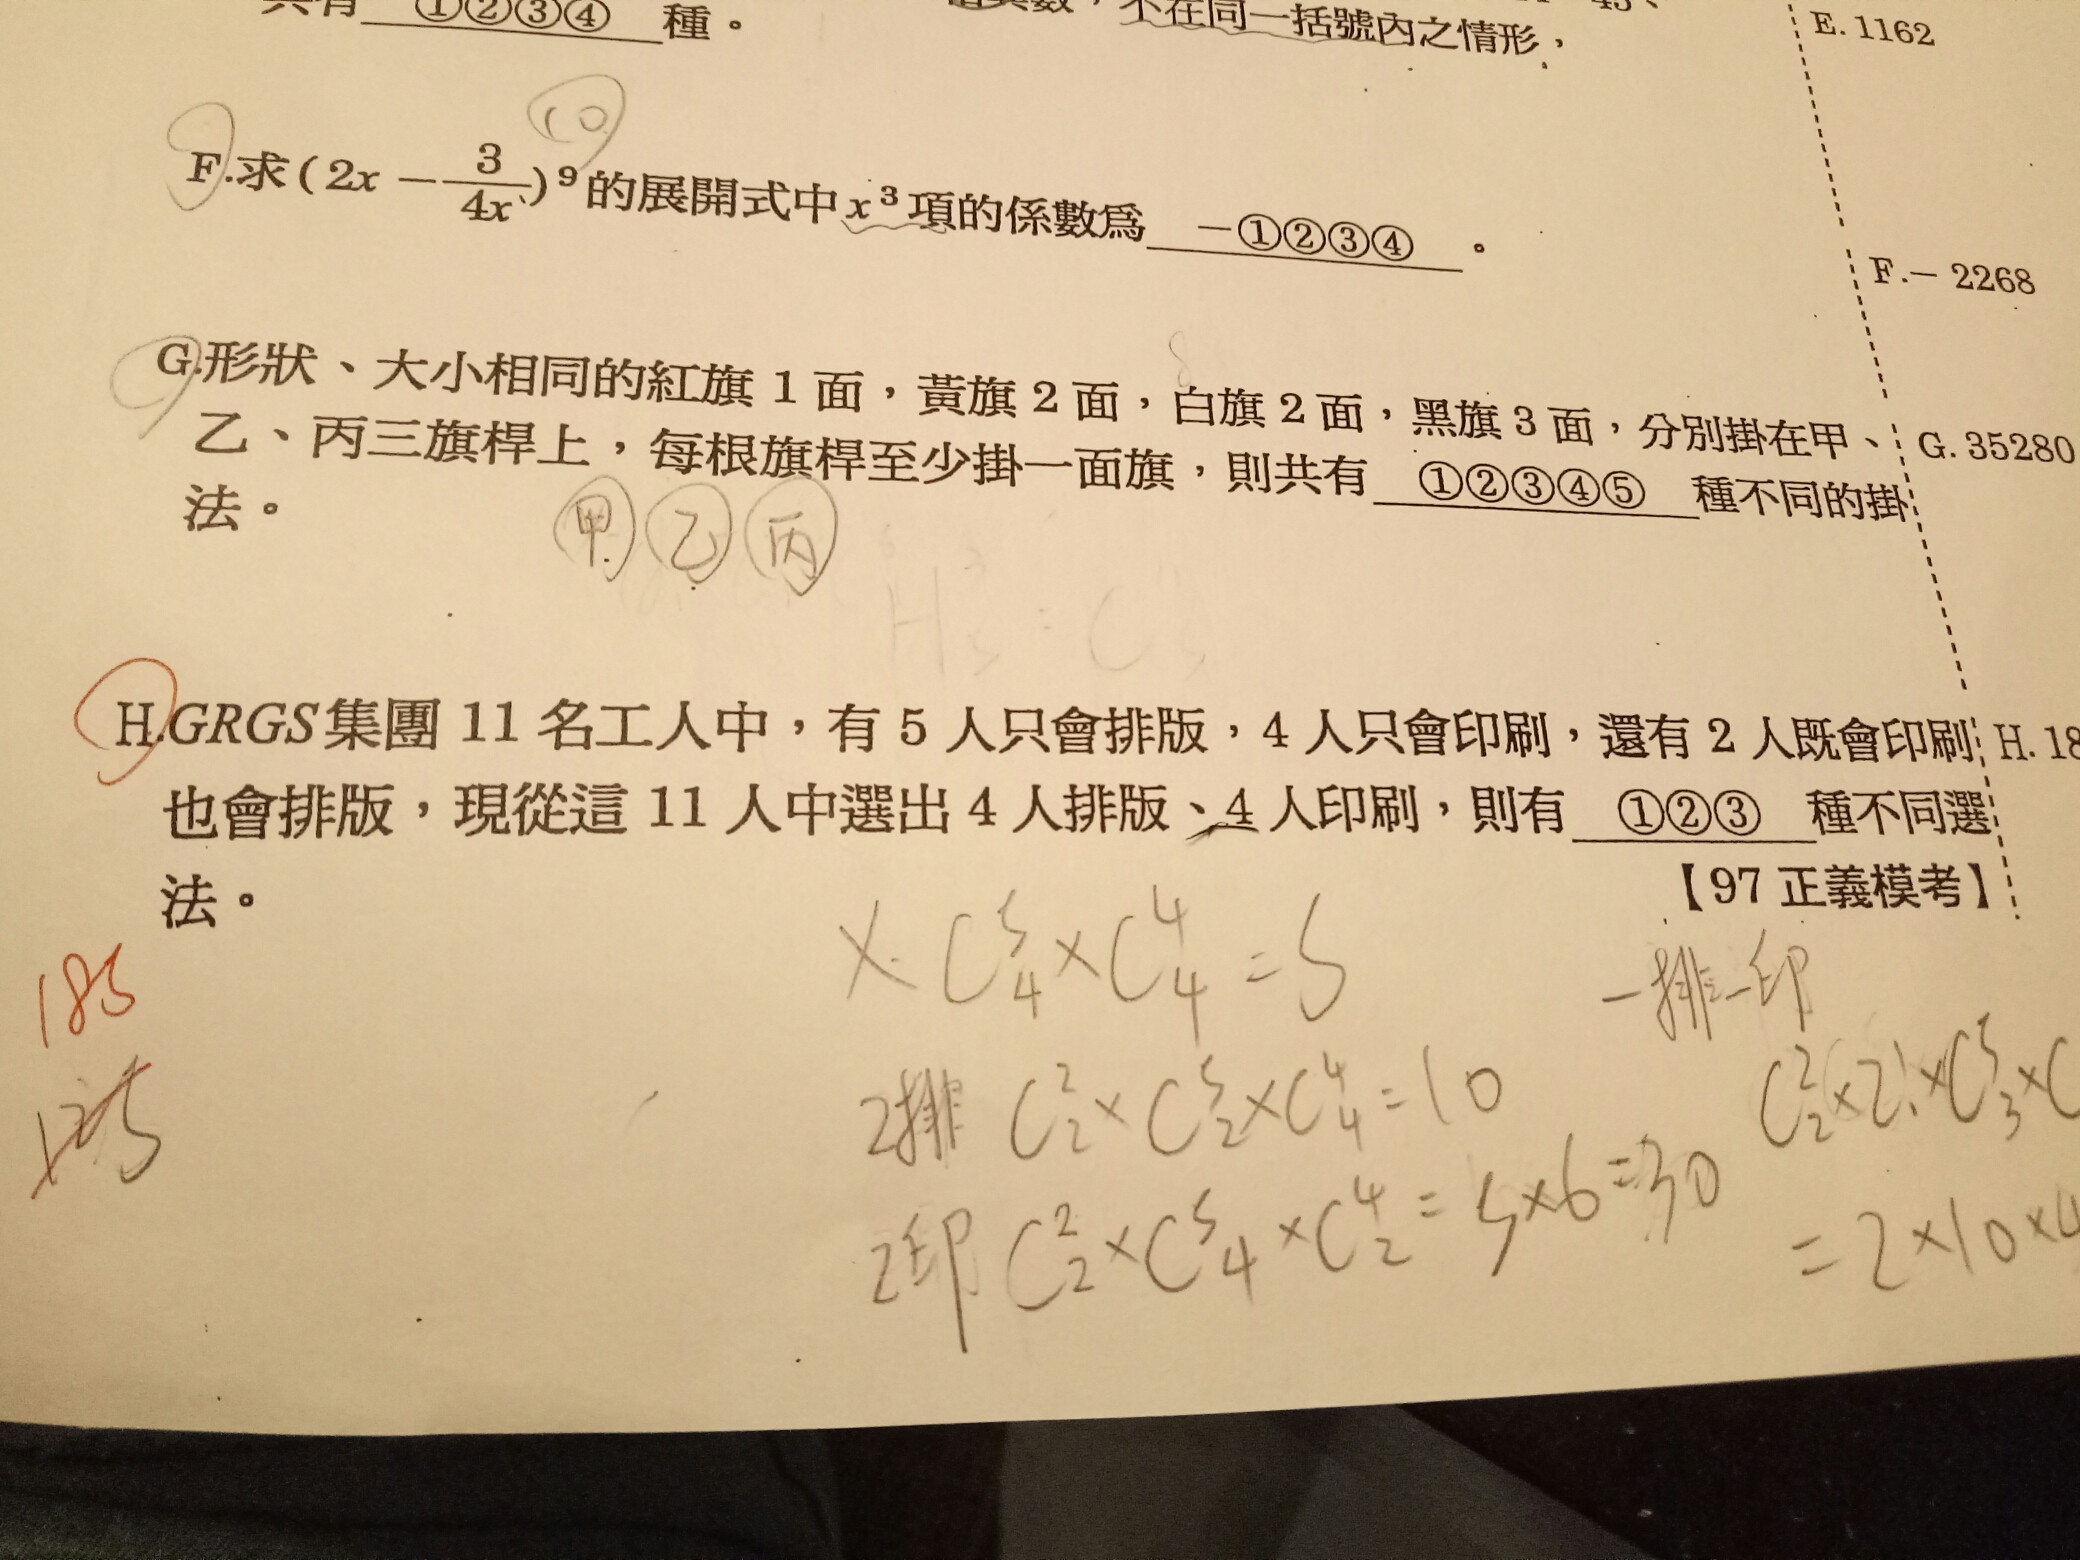 共有 ①②③④ 種。
不在同一括號內之情形，
E. 1162
10
F.求(2x − 3/4x)⁹的展開式中x³項的係數為 −①②③④ 。
F.− 2268
8
G.形狀、大小相同的紅旗 1 面，黃旗 2 面，白旗 2 面，黑旗 3 面，分別掛在甲、
乙、丙三旗桿上，每根旗桿至少掛一面旗，則共有 ①②③④⑤ 種不同的掛
法。
G. 35280
甲 乙 丙
H.GRGS集團 11 名工人中，有 5 人只會排版，4 人只會印刷，還有 2 人既會印刷
也會排版，現從這 11 人中選出 4 人排版、4 人印刷，則有 ①②③ 種不同選
法。
【97 正義模考】
H. 18
185
X. C⁵₄×C⁴₄=5
2排 C²₂×C⁵₂×C⁴₄=10
2印 C²₂×C⁵₄×C⁴₂=5×6=30
一排一印
C²₂×2!×C⁵₃×C
=2×10×4